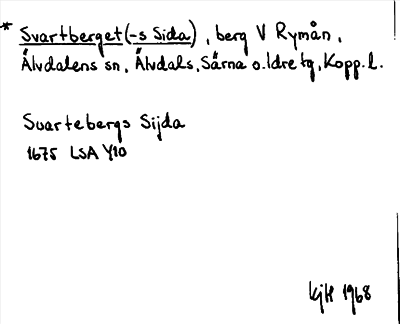 * Svartberget (-s Sida), berg V Rymån,
Älvdalens sn, Älvdals, Särna o. Idre tg, Kopp. l.
Svartebergs Sijda
1675 LSA Y10
KjH 1968